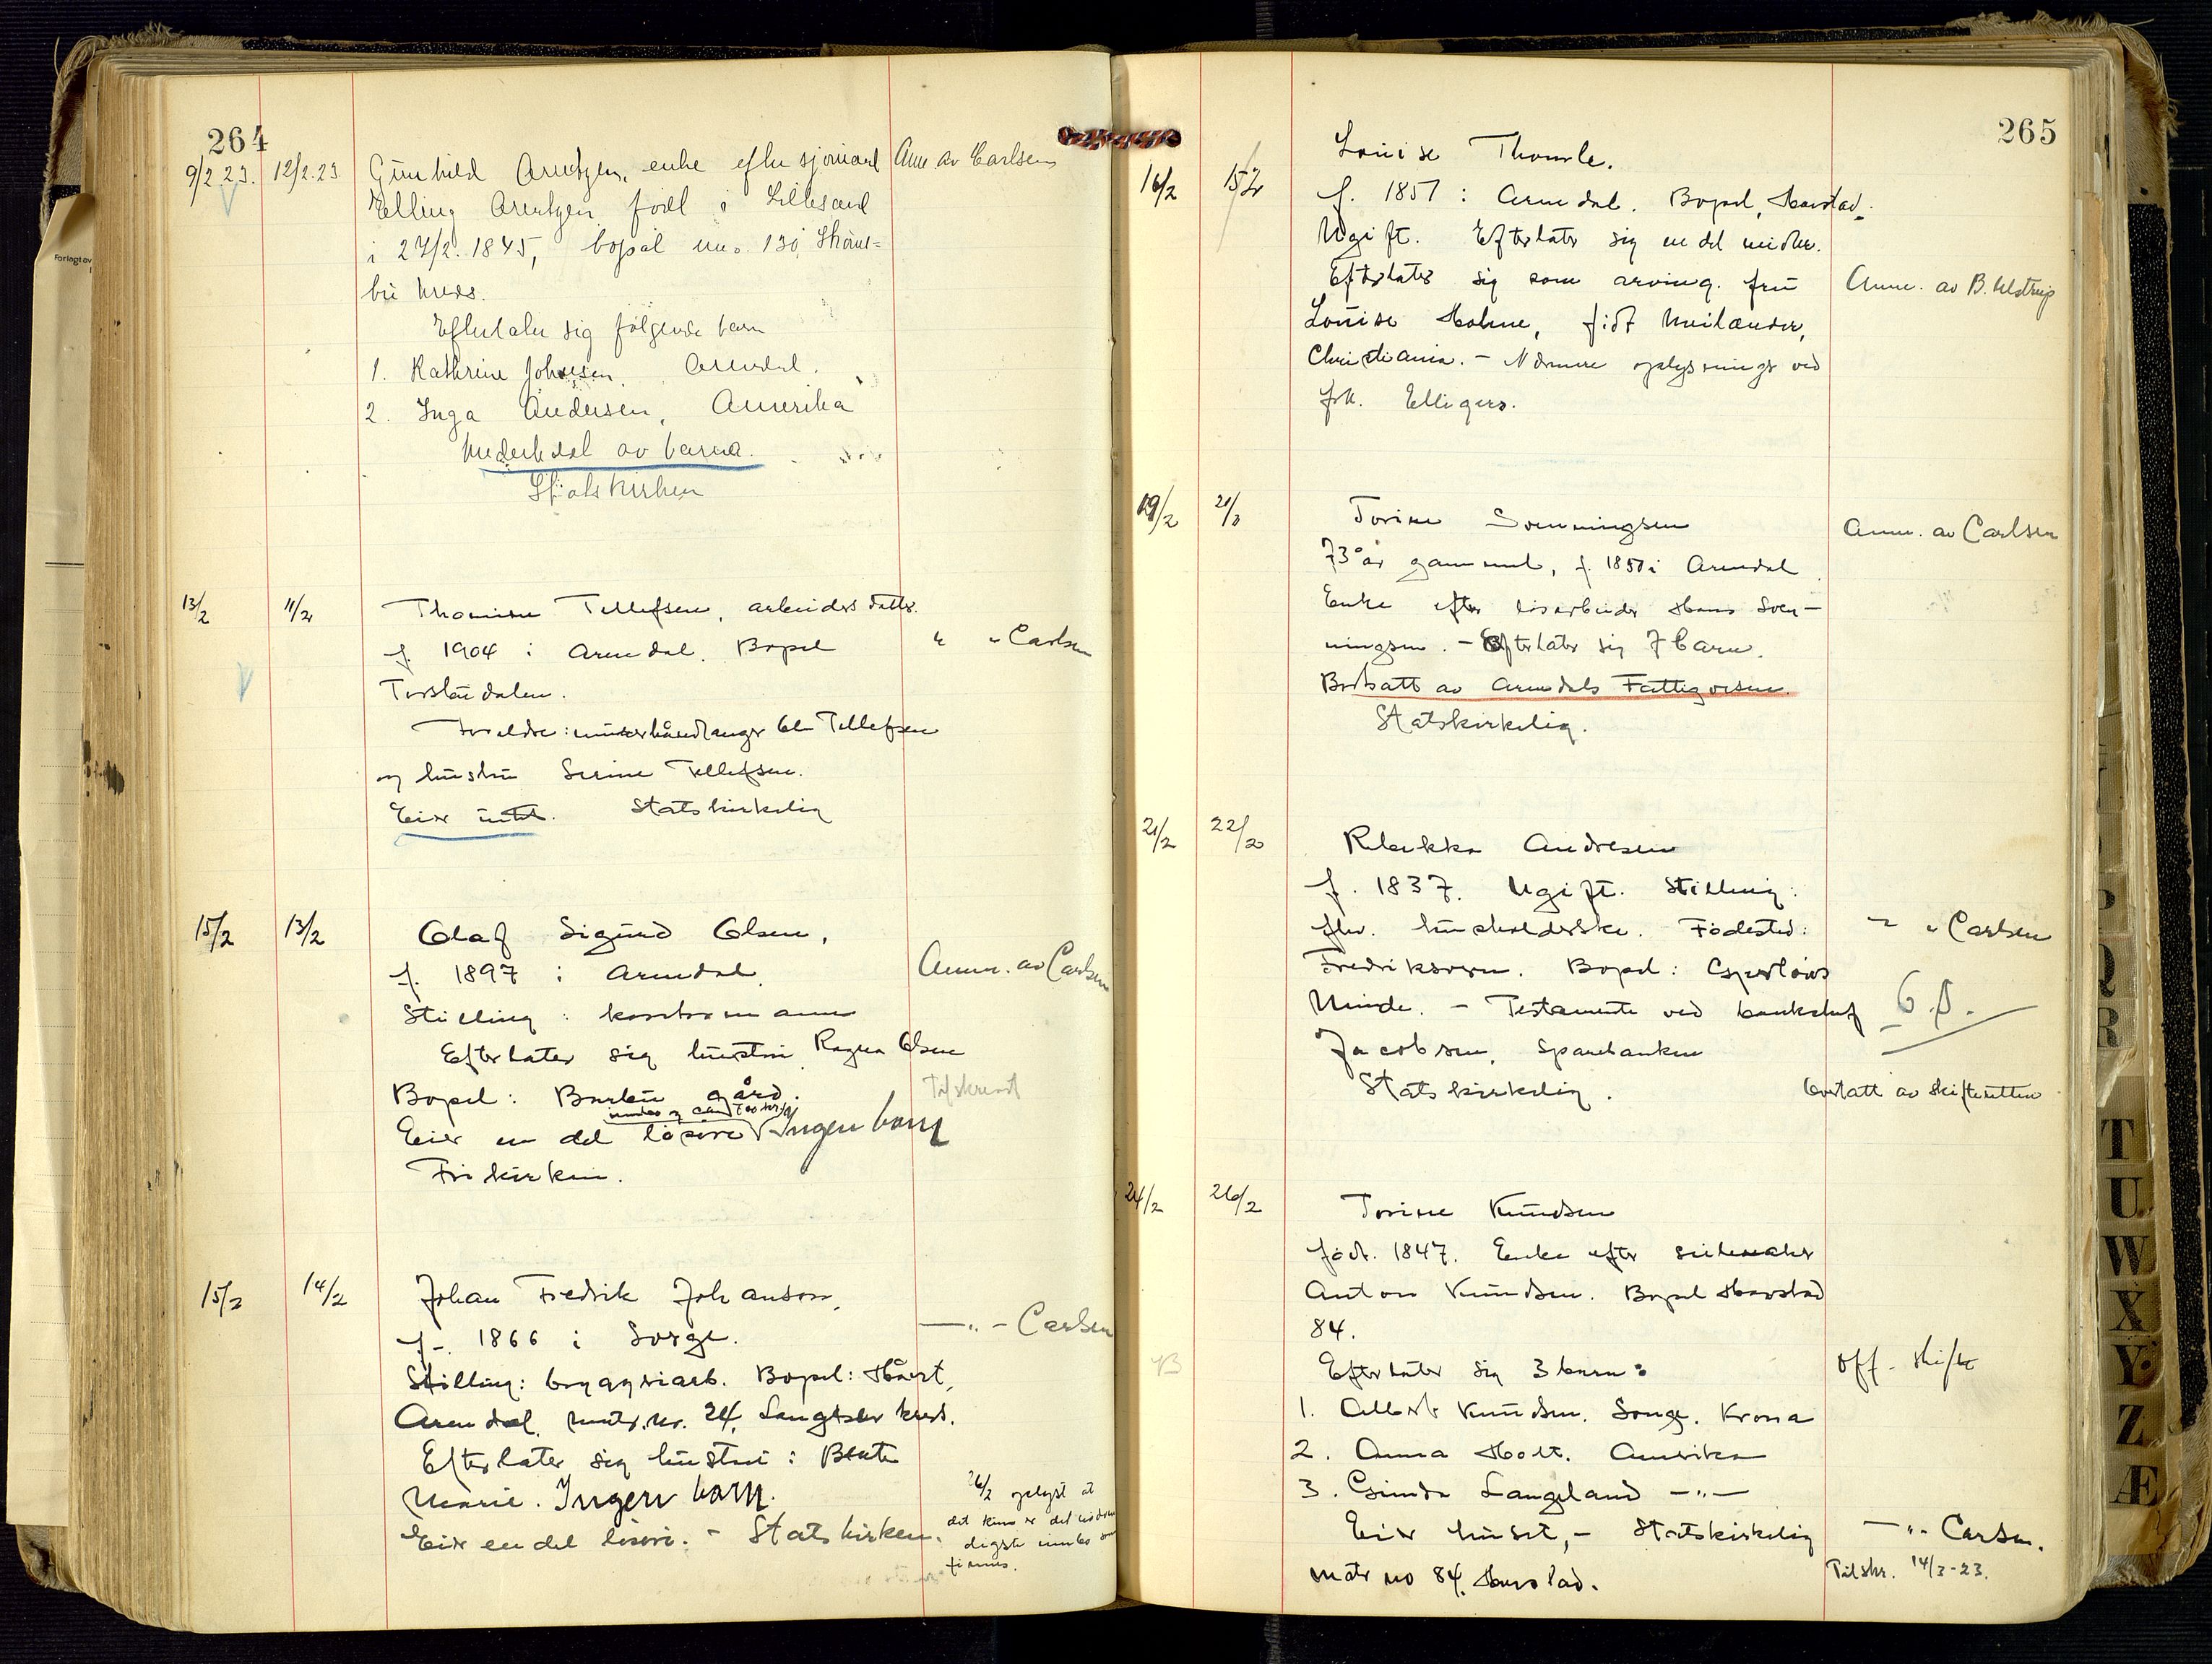 264
9/2.23. 12/2.23 Gunhild Arentzen, enke efter sjømand Anm. av Carlsen
Elling Arentzen, född i Lillesand
i 27/2. 1845, bopæl no. 130 Strøms-
bu kreds.
Efterlater sig følgende barn
1. Kathrine Johnsen, Arendal.
2. Inga Andersen, Amerika
Statskirken
13/2 11/2 Thomine Tellefsen, arbeiders datter.
f. 1904 i Arendal. Bopel " " Carlsen
Forældre: Ol. Tellefsen
og hustru Serine Tellefsen.
Eier intet. Statskirkelig
15/2 13/2 Olaf Sigurd Olsen,
f. 1897 i Arendal. Anm. av Carlsen
Stilling:
Efterlater sig hustru Ragna Olsen
Bopel: Barbu gård. Tilskrevet
Eier en del løsøre Ingen barn
Frikirken.
15/2 14/2 Johan Fredrik Johanson,
f. 1866 i Sverge. — " - Carlsen
Stilling: bryggeriarb. Bopel:
Arendal. matr. nr. 24, Langsæ kreds.
Efterlater sig hustru: Beate
Marie. Ingen barn.
Eier en del løsøre. - Statskirken.
26/2 oplyst at
det kun er det nødven
digste innbo som
finnes.
265
Louise Thomle.
16/2 15/2 f. 1851 i Arendal. Bopel, Havstad.
Ugift. Efterlater sig en del midler.
Efterlater sig som arving. fru Anm. av B. Ulstrup
Louise Holme, født
Christiania. - Nærmere oplysninger ved
frk. Elligers.
19/2 21/2 Torine Svenningsen Anm. av Carlsen
73 år gammel, f. 1850 i Arendal
Enke efter løsarbeider Hans Sven-
ningsen. - Efterlater sig 7 barn.
Bortsatt av Arendals Fattigvesen.
Statskirkelig.
21/2 22/2 Rebekka Andresen
f. 1837. Ugift. Stilling:
fhv. husholderske. Fødested: " " Carlsen
Fredriksvern. Bopel:
Minde. - Testamente ved bankchef
Jacobsen, Sparebanken
Statskirkelig. Overtatt av skifteretten
24/2 26/2 Torine Knudsen
født. 1847. Enke efter seilmaker
Anton Knudsen. Bopel Havstad
84.
Efterlater sig 3 barn: Off. skifte
1. Albert Knudsen. Songe. Krona
2. Anna Holt. Amerika
3. Gunda Langeland — " —
Eier huset, - Statskirkelig — " - Carlsen.
matr no 84. Havstad. Tilskr. 14/3-23.
T
U
W
X
Y
Z
Æ